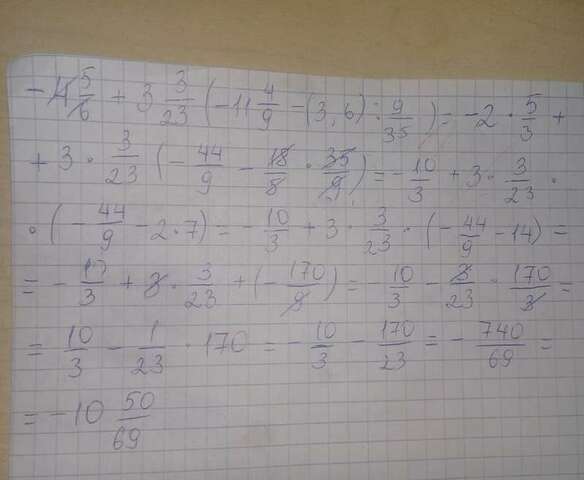 -4 5/6 + 3 3/23 (-11 4/9 -(3,6) : 9/35) = -2 · 5/3 +
+ 3 · 3/23 (- 44/9 - 18/8 · 35/9) = - 10/3 + 3 · 3/23 ·
· (- 44/9 - 2 · 7) = - 10/3 + 3 · 3/23 · (- 44/9 - 14) =
= - 13/3 + 3 · 3/23 + (- 170/9) = - 10/3 - 3/23 · 170/3 =
= 10/3 - 1/23 · 170 = - 10/3 - 170/23 = - 740/69 =
= -10 50/69